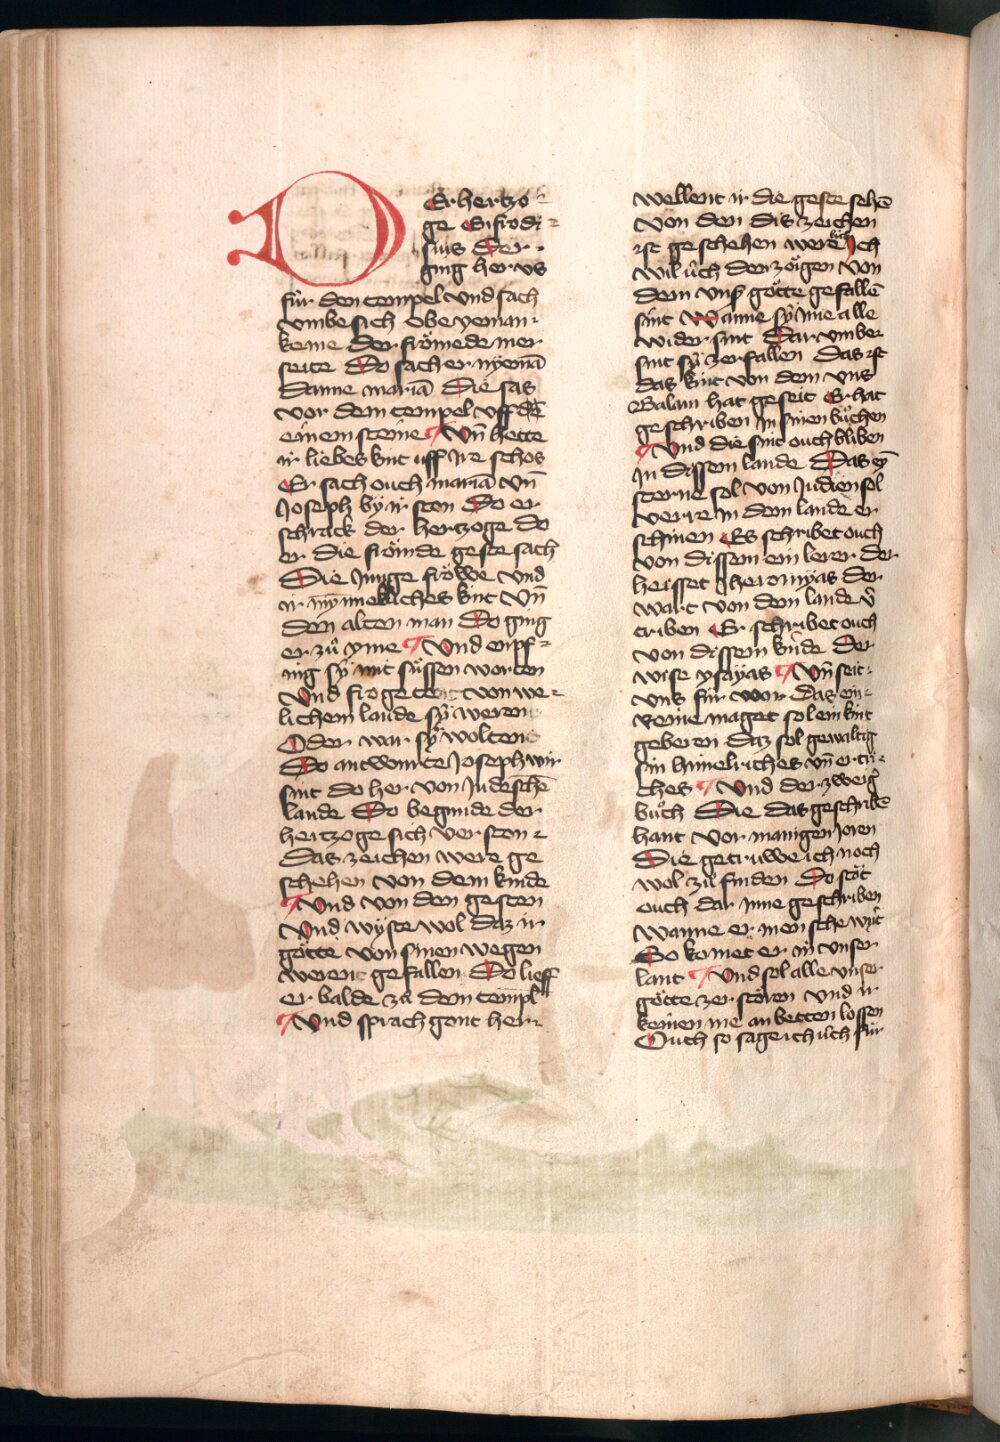 DEr hertzo⸗
ge Eifrodi⸗
sius Der
ging her vs
für den tempel vnd sach
vmbe sich obe yeman⸗
keme Der frömede mer
seite Do sach er nyemā
danne mariā Die sas
vor dem tempel vff dē
einem steine ¶ Vn̄ hette
ir liebes kint uff Jre schos
Er sach ouch mariā vn̄
Joseph by ir ston Do er
schrack der hertzoge do
er die frömde geste sach
Die Junge fröwe vnd
ir mÿnnekliches kint Vn̄
den alten man Do ging
er zů yme ¶ Vnd enpf⸗
ning sÿ mit süssen worten
Vnd frogetent von we⸗
lichem lande sÿ werent
Oder war sÿ woltent
Do antwurte Joseph wir
sint do her von Judeschē
lande Do begunde der
hertzoge sich verston
Das zeichen were ge
schehen von dem kinde
¶ Vnd von den gesten
Vnd wyste wol daz ir
götte von sinen wegen
werent gefallen Do lieff
er balde zů dem tempel
¶ Vnd sprach gont herr
wellent ir die geste sehē
von den dis zeichen
ist geschehen were üch Jch
wil üch den zöigen von
dem vns̄ götte gefallē
sint Wanne sÿ ime alle
wider sint Dar vmbe
sint sÿ zerfallen Das ist
das kint von dem vns
Balam hat geseit Er hat
geschriben Jn sinen bůchen
¶ Vnd die sint ouch bliben
Jn dissem lande Das eȳ
sterne sol von Judien sol
verre Jn dem lande er
schinen Es schribet ouch
von dissem ein lerer der
heisset Jheromÿas der
wart von dem lande v̄
triben Er schribet ouch
von dissem kinde Der
wise ysayas ¶ Vn̄ seit
vns für woor Das ein
reine maget sol ein kint
geberen Daz sol gewaltig
sin himelriches vn̄ ertri⸗
ches ¶ Vnd der zweig̊
bůch Die das geschribē
hant vor manigen Joren
Die getruwe ich noch
wol zů finden Do stöt
ouch dar Jnne geschriben
Wanne er mensche wirt
So komet er in vnser
lant ¶ Vnd sol alle vnser
götte zerstören vnd ir
keinen me anbetten lossen
Ouch so sage ich üch für